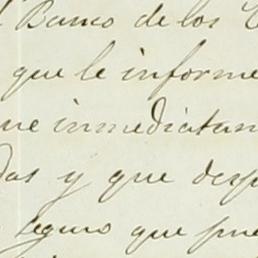 l Banco de los C
que le informe
ue inmediatam
das y que desp
seguro que pue